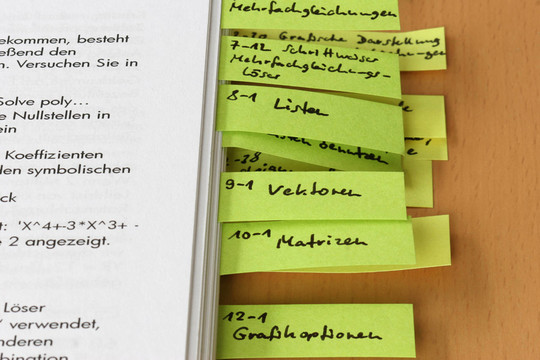 ekommen, besteht
eßend den
n. Versuchen Sie in
Solve poly...
e Nullstellen in
ein
Koeffizienten
den symbolischen
ck
t: 'X^4+-3*X^3+ -
e 2 angezeigt.
Löser
verwendet,
nderen
bination
Mehrfachgleichungen
Grafische Darstellung
7-12 Schrittweiser
Mehrfachgleichungs-
Löser
8-1 Listen
isten benutzen
-28
9-1 Vektoren
10-1 Matrizen
12-1
Grafikoptionen